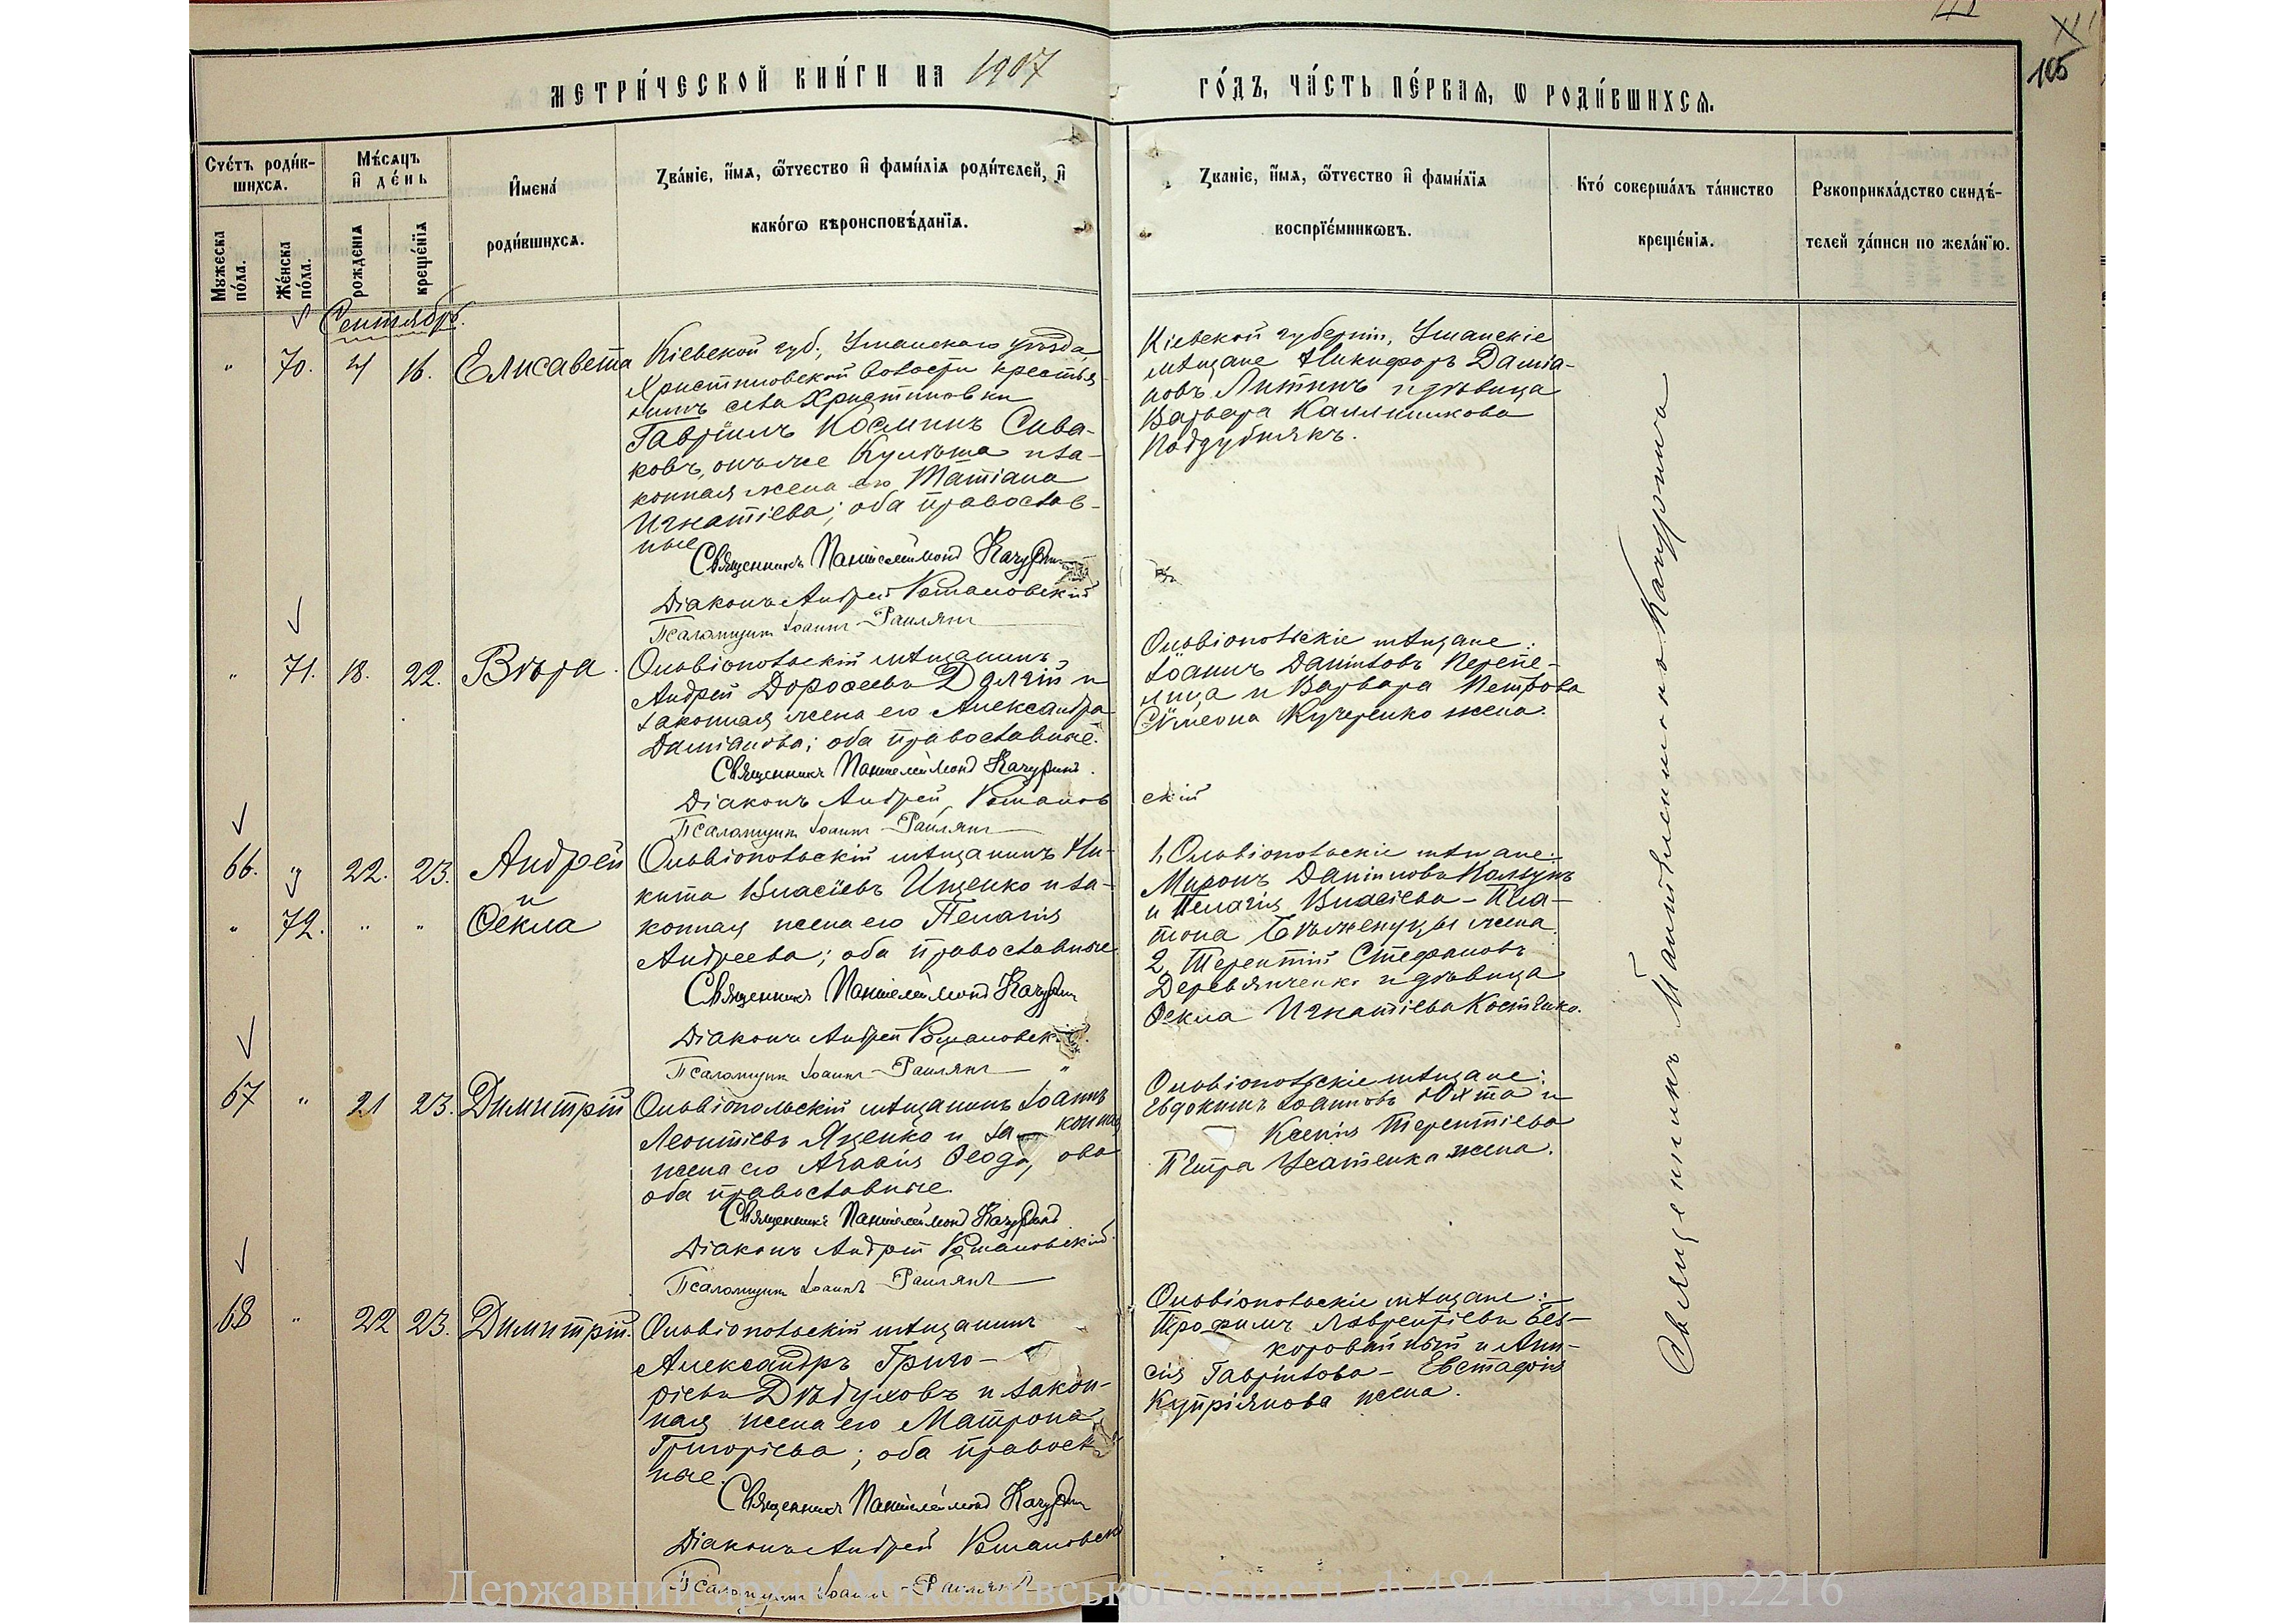 105
МЕТРИ́ЧЕСКОЙ КНИ́ГИ НА 1907
ГО́ДЪ, ЧА́СТЬ ПЕ́РВАЯ, Ѡ РОДИ́ВШИХСѦ.
Сче́тъ роди́в-
шихсѧ.
Мꙋжеска по́ла.
Же́нска по́ла.
Мѣ́сѧцъ
и҆ де́нь
рожденїѧ
креще́нїѧ
И҆мена́
роди́вшихсѧ.
Зва́нїе, и҆́мѧ, ѻ҆́тчество и҆ фами́лїѧ роди́телей, и҆
како́гѡ вѣроисповѣ́данїѧ.
Званїе, и҆́мѧ, ѻ҆́тчество и҆ фами́лїѧ
воспрїе́мникѡвъ.
Кто́ соверша́лъ та́инство
креще́нїѧ.
Рꙋкоприкла́дство свидѣ́-
телей за́писи по жела́нїю.
Сентябрь.
" 70. 4 16. Елисавета
Кіевской губ., Уманскаго уѣзда
Христиновской волости крестья
нинъ села Христиновки
Гавріилъ Косминъ Сива-
ковъ, онъ же Кулѣша и за-
конная жена его Татіана
Игнатіева; оба православ-
ные
Священникъ Пантелеймонъ Качурин
Діаконъ Андрей Романовскій
Псаломщик Іоаннъ Раилянъ
Кіевской губерніи, Уманскіе
мѣщане Никифоръ Даміа-
новъ Литтинъ и дѣвица
Варвара Каллиникова
Поддубнякъ.
" 71. 18. 22. Вѣра.
Ольвіопольскій мѣщанинъ
Андрей Дорофеевъ Далгій и
законная жена его Александра
Даміанова; оба православные.
Священникъ Пантелеймонъ Качуринъ.
Діаконъ Андрей Романов скій
Псаломщик Іоаннъ Раилянъ
Ольвіопольскіе мѣщане:
Іоаннъ Даніиловъ Перепе-
лица и Варвара Петрова
Сѵмеона Кучеренко жена.
66. " 22. 23. Андрей
и
" 72. " " Ѳекла
Ольвіопольскій мѣщанинъ Ни-
кита Власіевъ Ищенко и за-
конная жена его Пелагія
Андреева; оба православные
Священникъ Пантелеймонъ Качурин
Діаконъ Андрей Романовскій.
Псаломщик Іоаннъ Раилянъ "
1, Ольвіопольскіе мѣщане:
Миронъ Даніиловъ Колзунъ
и Пелагія Власіева - Пла-
тона жена.
2, Терентій Стефановъ
Деревянченко и дѣвица
Ѳекла Игнатіева Костенко.
67 " 21 23. Димитрій
Ольвіопольскій мѣщанинъ Іоаннъ
Леонтіевъ Яценко и за- конная
жена его Агафія Ѳеодо, ова
оба православные.
Священникъ Пантелеймонъ Качуринъ
Діаконъ Андрей Романовскій.
Псаломщик Іоаннъ Раилянъ
Ольвіопольскіе мѣщане:
Евдокимъ Іоанновъ Юхта и
Ксенія Терентіева
Петра Усатенко жена.
68 " 22 23. Димитрій.
Ольвіопольскій мѣщанинъ
Александръ Григо-
ріевъ Дѣдуховъ и закон-
ная жена его Матрона
Григоріева; оба правосл
ные.
Священникъ Пантелеймонъ Качурин
Діаконъ Андрей Романовск
Псаломщик Іоаннъ Раилянъ
Ольвіопольскіе мѣщане:
Трофимъ Лаврентіевъ Без-
коровайный и Ани-
сія Гавріилова - Евстафія
Купріянова жена.
Священникъ Пантелеимонъ Качуринъ
Державний архів Миколаївської області, ф.484, оп.1, спр.2216